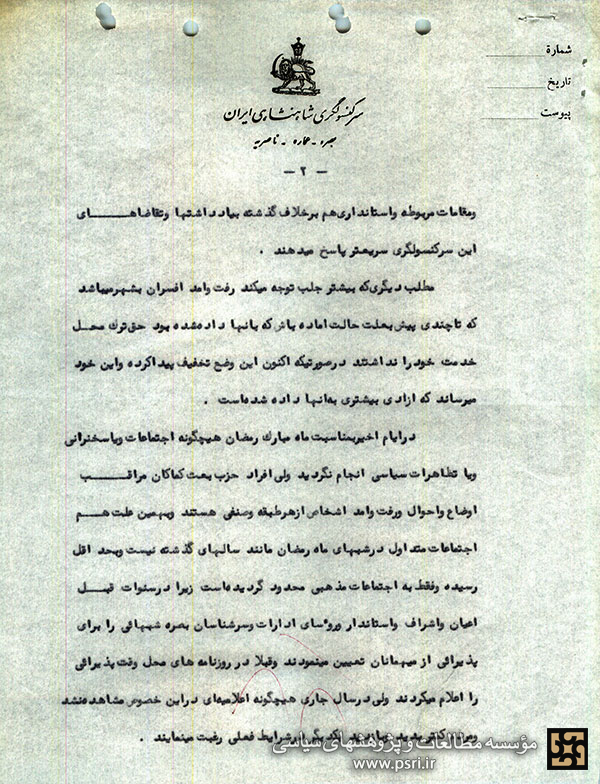 شماره
تاریخ
پیوست
سرکنسولگری شاهنشاهی ایران
بصره - عماره - ناصریه
- ۲ -
ومقامات مربوطه واستانداری هم برخلاف گذشته بیادداشتها وتقاضاهای
این سرکنسولگری سریعتر پاسخ میدهند .
مطلب دیگری که بیشتر جلب توجه میکند رفت وامد افسران بشهر میباشد
که تاچندی پیش بعلت حالت اماده باش که بانها داده شده بود حق ترك محل
خدمت خود را نداشتند درصورتیکه اکنون این وضع تخفیف پیدا کرده واین خود
میرساند که ازادی بیشتری به انها داده شده است .
درایام اخیر بمناسبت ماه مبارك رمضان هیچگونه اجتماعات ویاسخنرانی
ویا تظاهرات سیاسی انجام نگردید ولی افراد حزب بعث کماکان مراقب
اوضاع واحوال ورفت وامد اشخاص ازهر طبقه وصنفی هستند وبهمین علت هم
اجتماعات متداول در شبهای ماه رمضان مانند سالهای گذشته نیست وبحد اقل
رسیده وفقط به اجتماعات مذهبی محدود گردیده است زیرا در سنوات قبل
اعیان واشراف واستاندار وروسای ادارات وسرشناسان بصره شبهائی را برای
پذیرائی از میهمانان تعیین مینمودند وقبلا در روزنامه های محل وقت پذیرائی
را اعلام میکردند ولی در سال جاری هیچگونه اعلامیه ای در این خصوص مشاهده نشد
ومردم کمتر بدید وبازدید یکدیگر درشرایط فعلی رغبت مینمایند .
مؤسسه مطالعات و پژوهشهای سیاسی
www.psri.ir